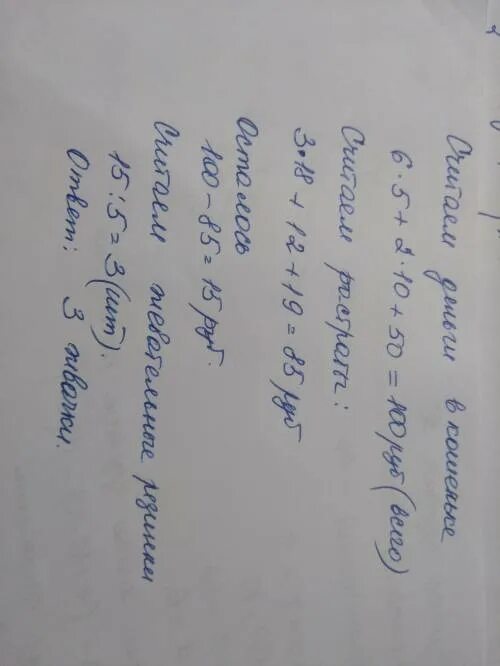 Считаем деньги в кошельке
6·5+2·10+50=100руб(всего)
Считаем ростраты:
3·18+12+19=85руб
Осталось
100-85=15руб.
Считаем жевательные резинки
15:5=3(шт).
Ответ: 3 жвачки.